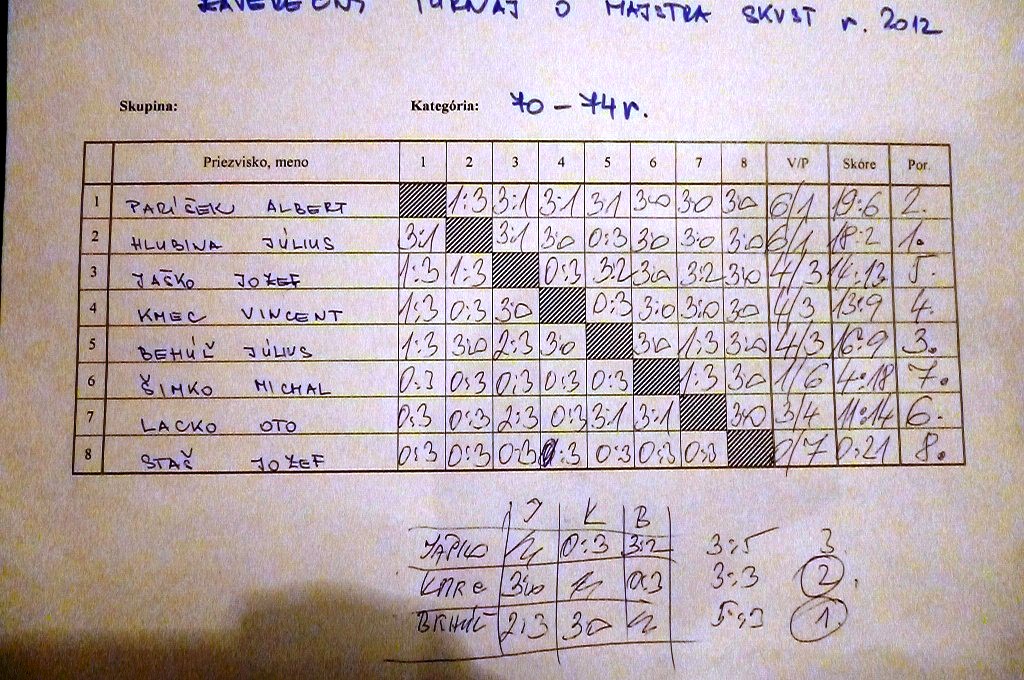 ZÁVEREČNÝ TURNAJ O MAJSTRA SKVST r. 2012
Skupina: Kategória: 70-74 r.
Priezvisko, meno 1 2 3 4 5 6 7 8 V/P Skóre Por.
1 PARÍČEK ALBERT 1:3 3:1 3:1 3:1 3:0 3:0 3:0 6/1 19:6 2.
2 HLUBINA JÚLIUS 3:1 3:1 3:0 0:3 3:0 3:0 3:0 6/1 18:2 1.
3 JAČKO JOZEF 1:3 1:3 0:3 3:2 3:0 3:2 3:0 4/3 14:13 5.
4 KMEC VINCENT 1:3 0:3 3:0 0:3 3:0 3:0 3:0 4/3 13:9 4.
5 BEHÚĽ JÚLIUS 1:3 3:0 2:3 3:0 3:0 1:3 3:0 4/3 16:9 3.
6 ŠIMKO MICHAL 0:3 0:3 0:3 0:3 0:3 1:3 3:0 1/6 4:18 7.
7 LACKO OTO 0:3 0:3 2:3 0:3 3:1 3:1 3:0 3/4 11:14 6.
8 STAŠ JOZEF 0:3 0:3 0:3 0:3 0:3 0:3 0:3 0/7 0:21 8.
J K B
JAČKO 0:3 3:2 3:5 3.
KMEC 3:0 0:3 3:3 2.
BEHÚĽ 2:3 3:0 5:3 1.